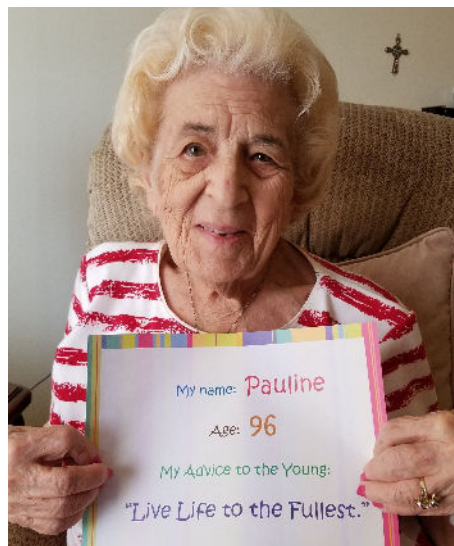 My name: Pauline
Age: 96
My Advice to the Young:
"Live Life to the Fullest."